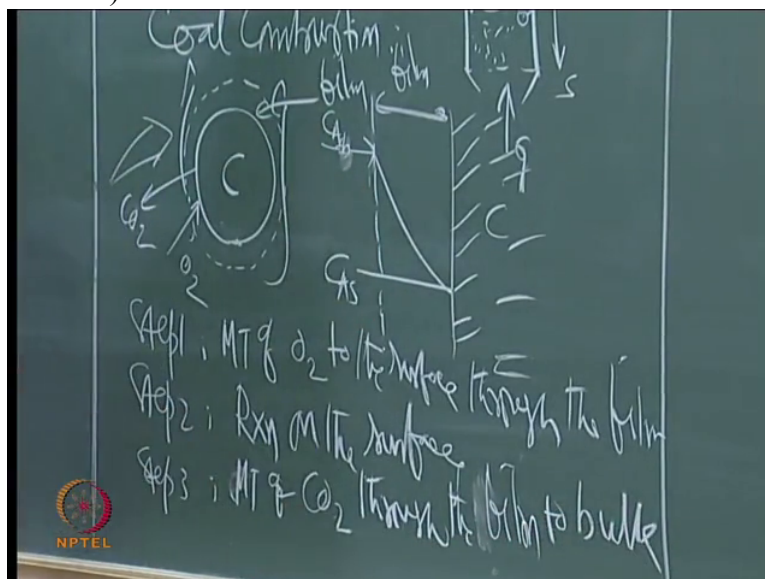 Coal Combustion
film film
S
C_Ab
g
C
C
CO2
O2
C_AS
Step 1 : MT of O2 to the surface through the film
Step 2 : Rxn on the surface
Step 3 : MT of CO2 through the film to bulk
NPTEL